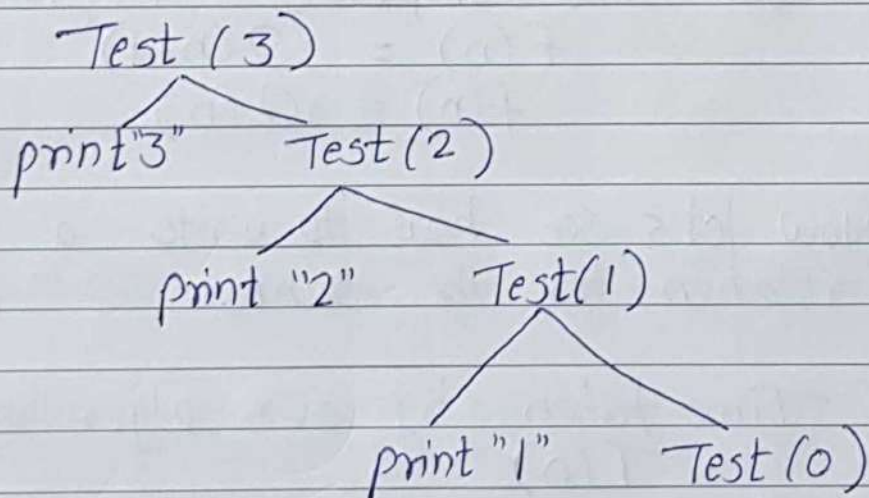 Test (3)
print "3" Test (2)
print "2" Test(1)
print "1" Test (0)